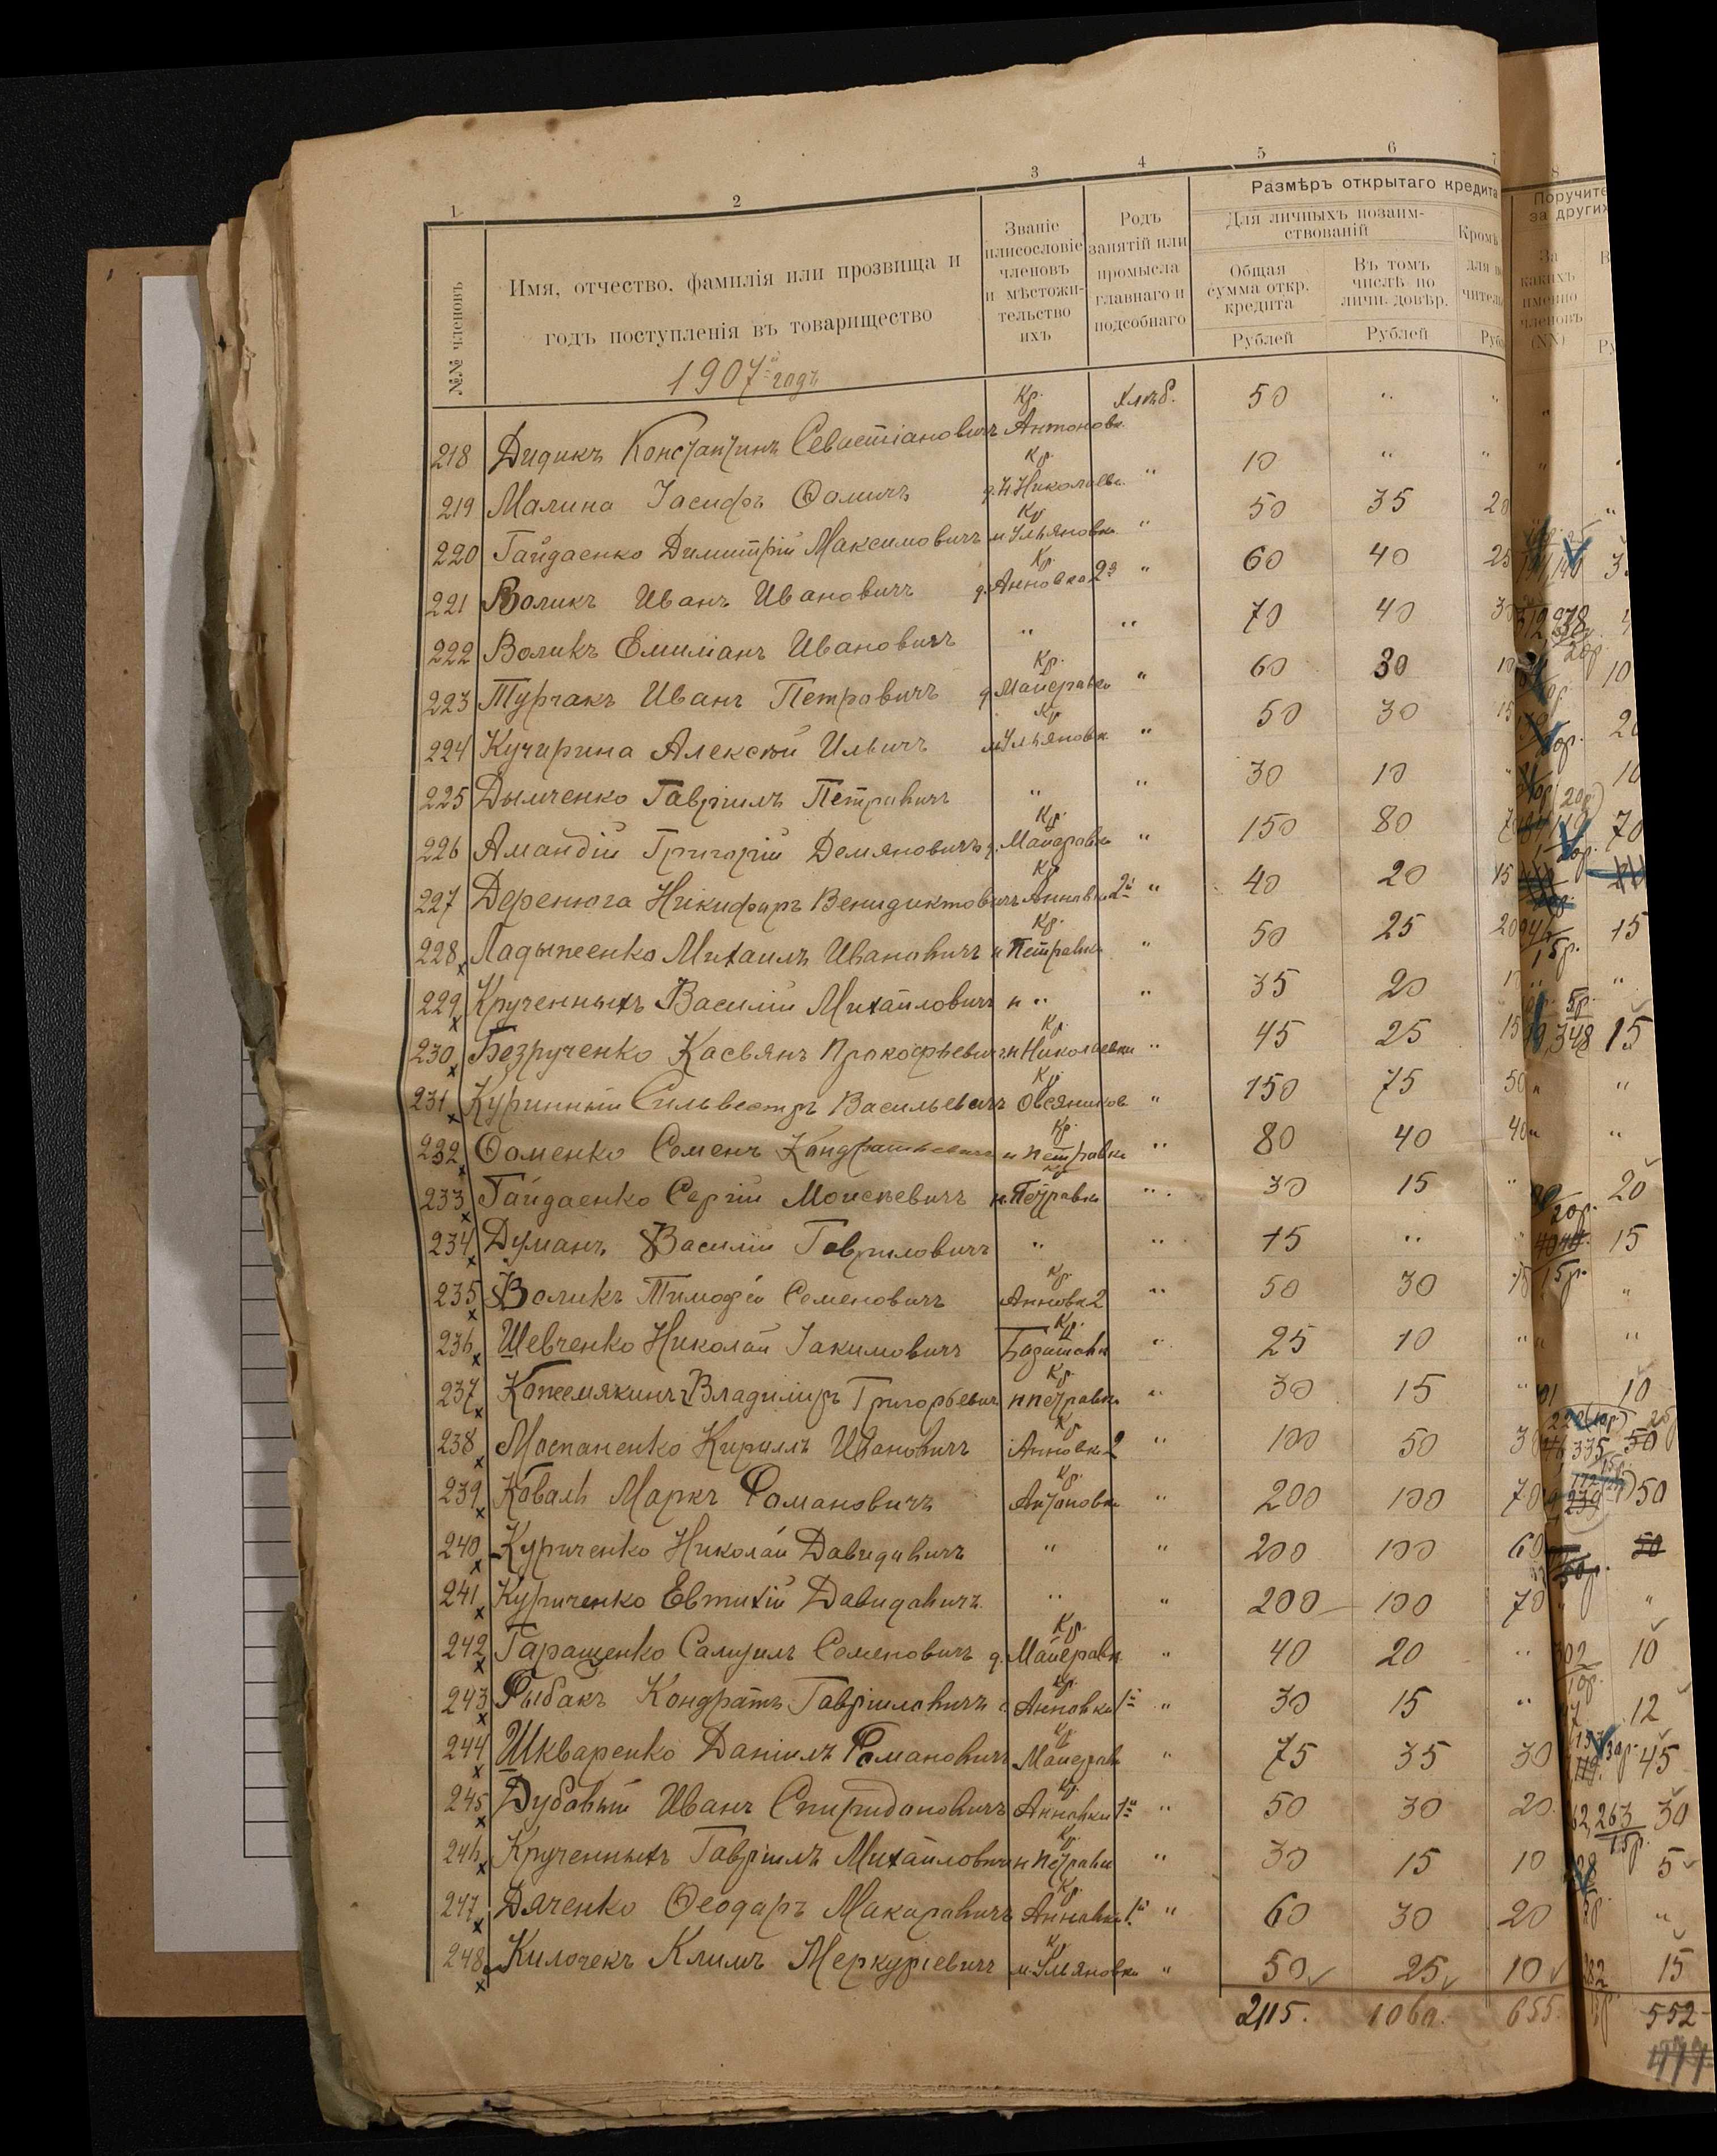 1 2 3 4 5 6 7 8
№№ членовъ
Имя, отчество, фамилія или прозвища и
годъ поступленія въ товарищество
1907 й годъ
Званіе
или сословіе
членовъ
и мѣстожи-
тельство
ихъ
Родъ
занятій или
промысла
главнаго и
подсобнаго
Размѣръ открытаго кредита
Для личныхъ позаим-
ствованій
Общая
сумма откр.
кредита
Рублей
Въ томъ
числѣ по
личн. довѣр.
Рублей
Кромѣ
для
Поручите
за других
За
какихъ
именно
членовъ
218 Дидикъ Константинъ Севастіановичъ Кр. Антоновк. Хлѣб. 50 " "
219 Малина Іасифъ Ѳомичъ Кр. д. Н Николаевк. " 10 " "
220 Гайдаенко Димитрій Максимовичъ Кр м Ульяновк. " 50 35 20
221 Воликъ Иванъ Ивановичъ Кр. д. Анновка 2я " 60 40 25
222 Воликъ Емиліанъ Ивановичъ " " 70 40 30
223 Турчакъ Иванъ Петровичъ Кр. д Майеровк " 60 30 10 10
224 Кучирина Алексѣй Ильичъ Кр м Ульяновк " 50 30 15
225 Дымченко Гавріилъ Петровичъ " " 30 10 " 10
226 Амандій Григорій Демяновичъ Кр. д. Майеровк " 150 80 70 70
227 Деренюга Никифоръ Венидиктовичъ Кр Анновк 2я " 40 20 15
228 Ладыженко Михаилъ Ивановичъ Кр. н Петровк " 50 25 20 15
229 Крученныхъ Василій Михайловичъ н " " 35 20 "
230 Безрученко Касьянъ Прокофьевичъ Кр. н Николаевки " 45 25 15 348 15
231 Куринный Сильвестръ Васильевичъ Кр Овсяников " 150 75 50 " "
232 Ѳоменко Семенъ Кондратьевичъ Кр. н Петровк " 80 40 40 " "
233 Гайдаенко Сергій Моисѣевичъ Кр н. Петровк " 30 15 " 20
234 Думанъ Василій Гавриловичъ " " 15 " " 15
235 Воликъ Тимофѣй Семеновичъ Кр. Анновк 2 " 50 30 15 "
236 Шевченко Николай Іакимовичъ Кр. " 25 10 " " "
237 Кожемякинъ Владимиръ Григорьевичъ Кр. н Петровк " 30 15 " 10
238 Мостаненко Кириллъ Ивановичъ Кр Анновк 2 " 100 50 30 335 50
239 Коваль Маркъ Романовичъ Кр. Антоновк " 200 100 70 239 50
240 Куриченко Николай Давидовичъ " " 200 100 60 50
241 Куриченко Евтихій Давидовичъ " " 200 100 70 " "
242 Гаращенко Самуилъ Семеновичъ Кр. д. Майеровк " 40 20 " 302 10
243 Рыбакъ Кондратъ Гавріиловичъ Кр. Анновк 1я " 30 15 " 12
244 Шкваренко Даніилъ Романовичъ Кр Майеров " 75 35 30 45
245 Дубовый Иванъ Спиридоновичъ Кр. Анновки 1я " 50 30 20 62,263 30
246 Крученныхъ Гавріилъ Михайлович Кр. н Петровк " 30 15 10 5
247 Дяченко Ѳеодоръ Макаровичъ Кр. Анновк 1я " 60 30 20 "
248 Килочекъ Климъ Меркуріевичъ Кр м. Ульяновк " 50 25 10 15
2115. 1060. 655. 552
477